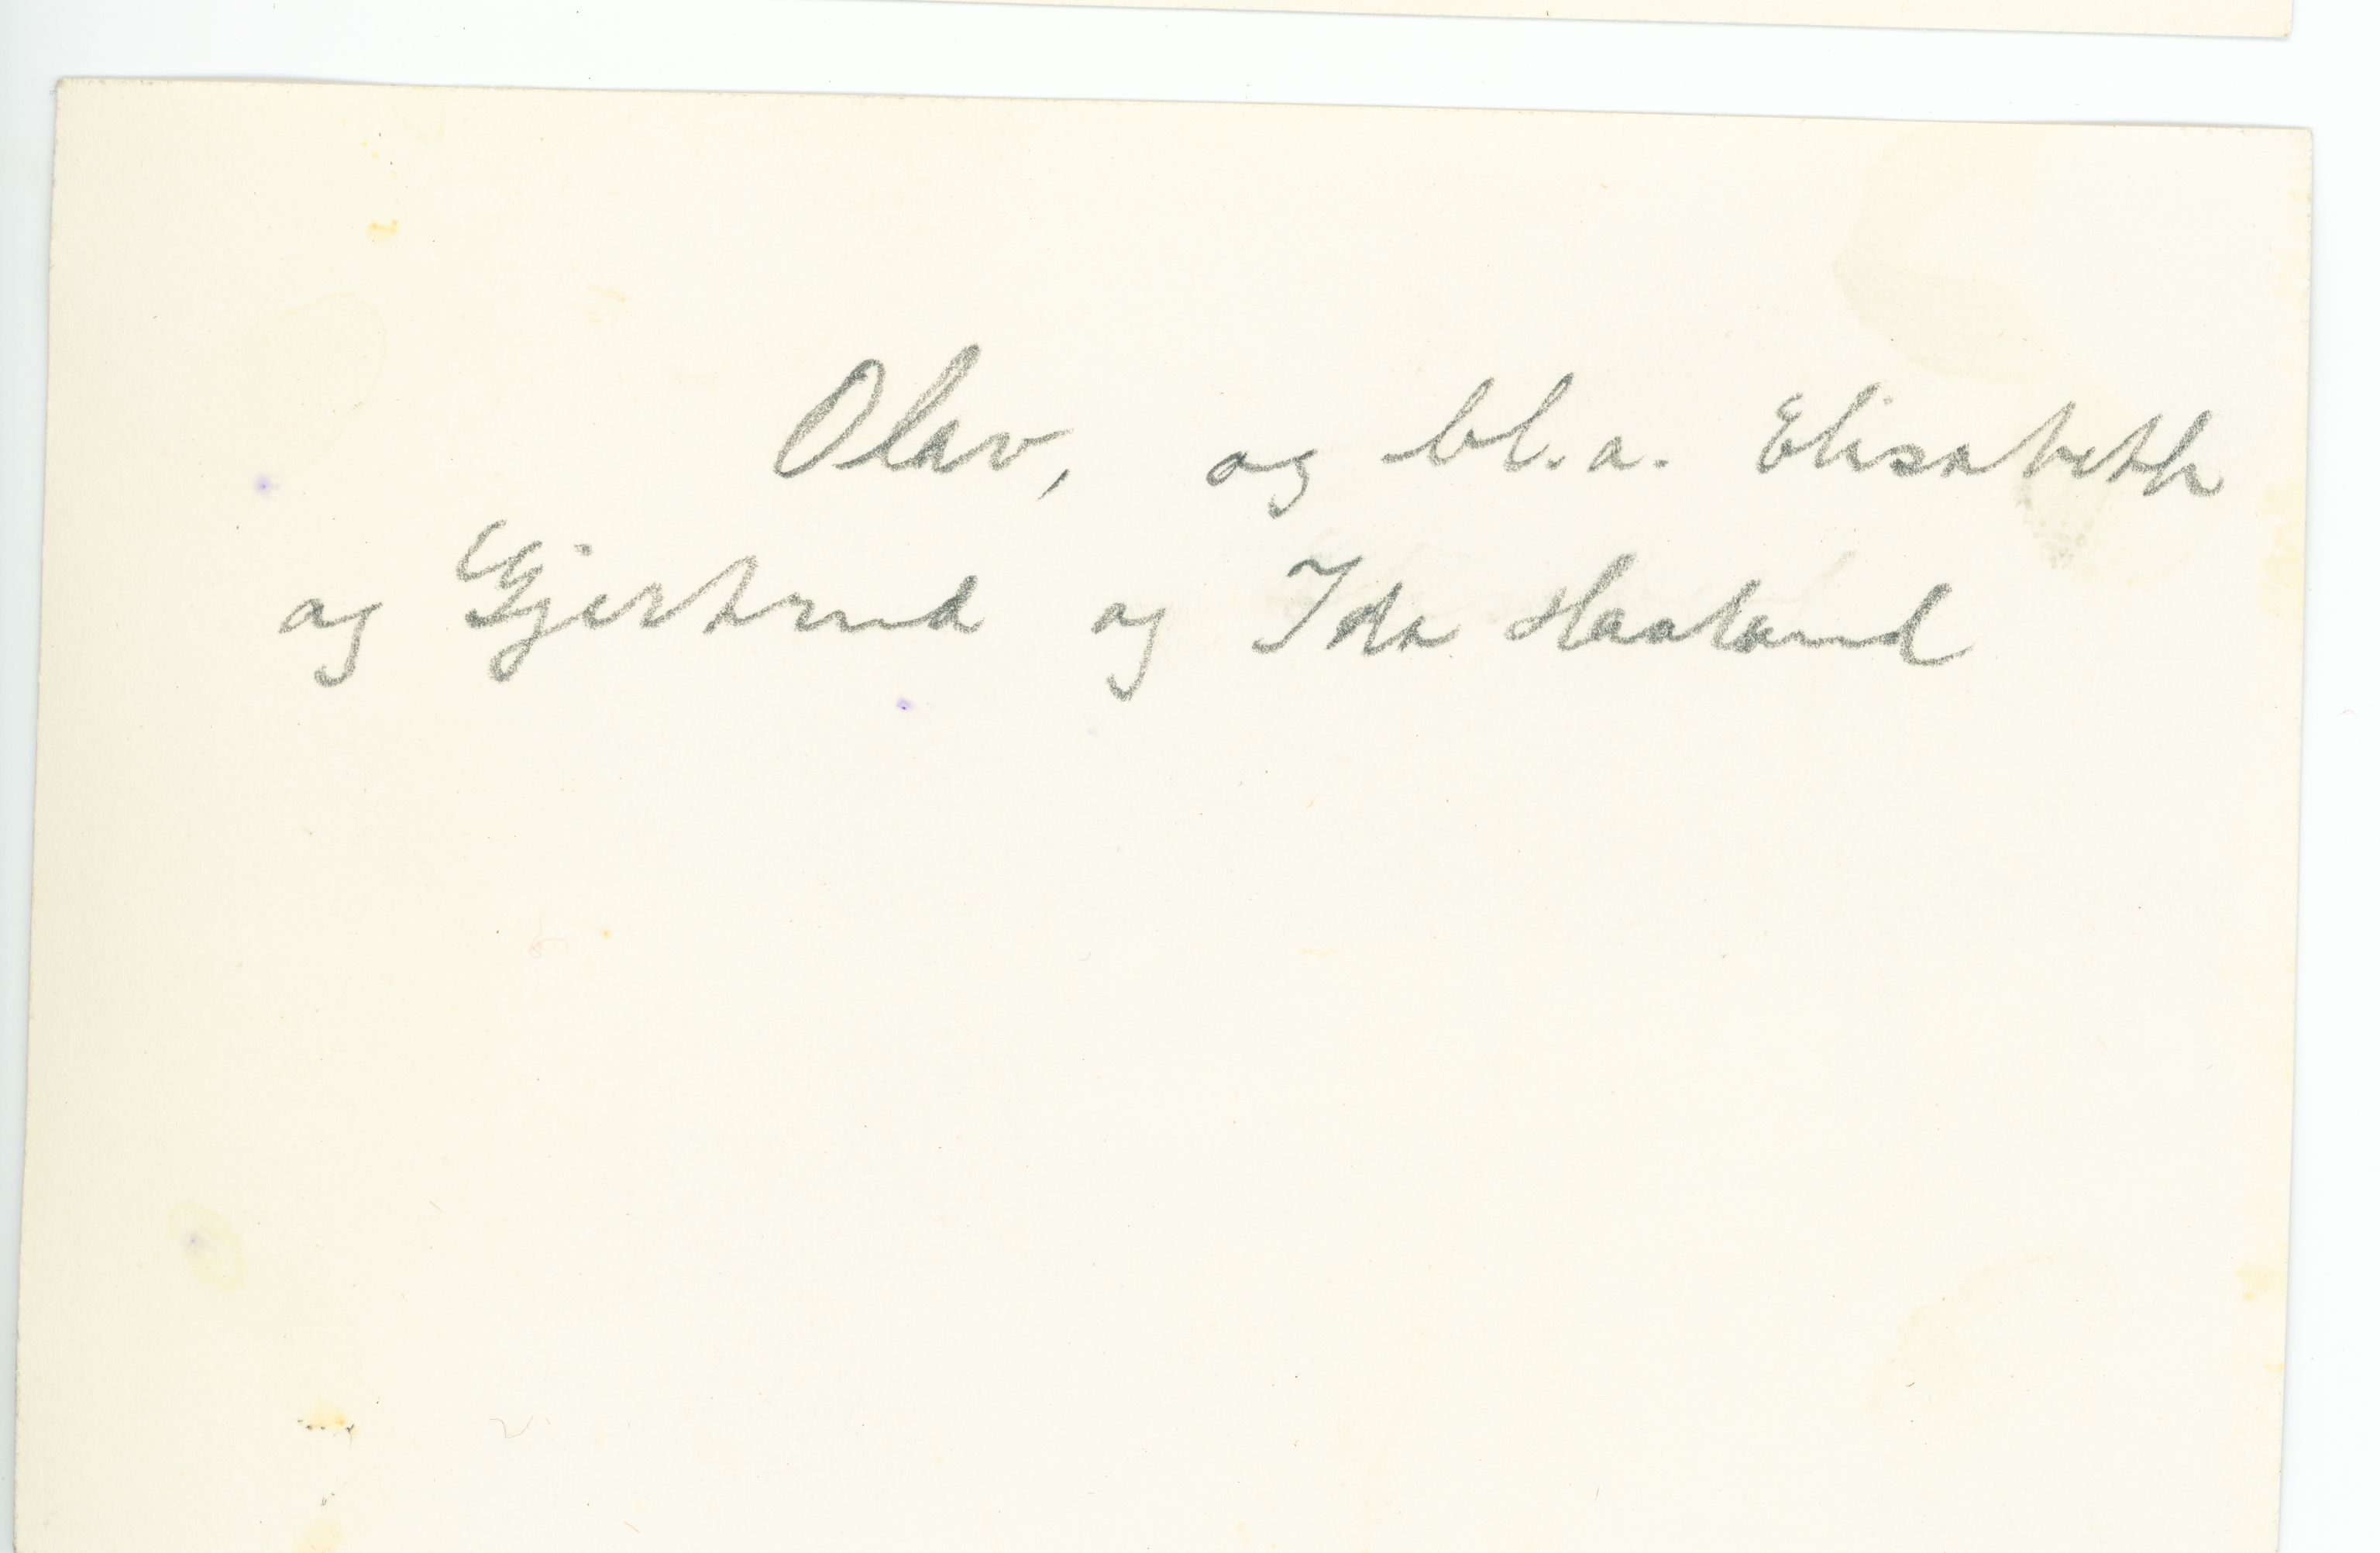 Olav, og bl.a. Elisabeth
og Gjertrud og Ida Haaland